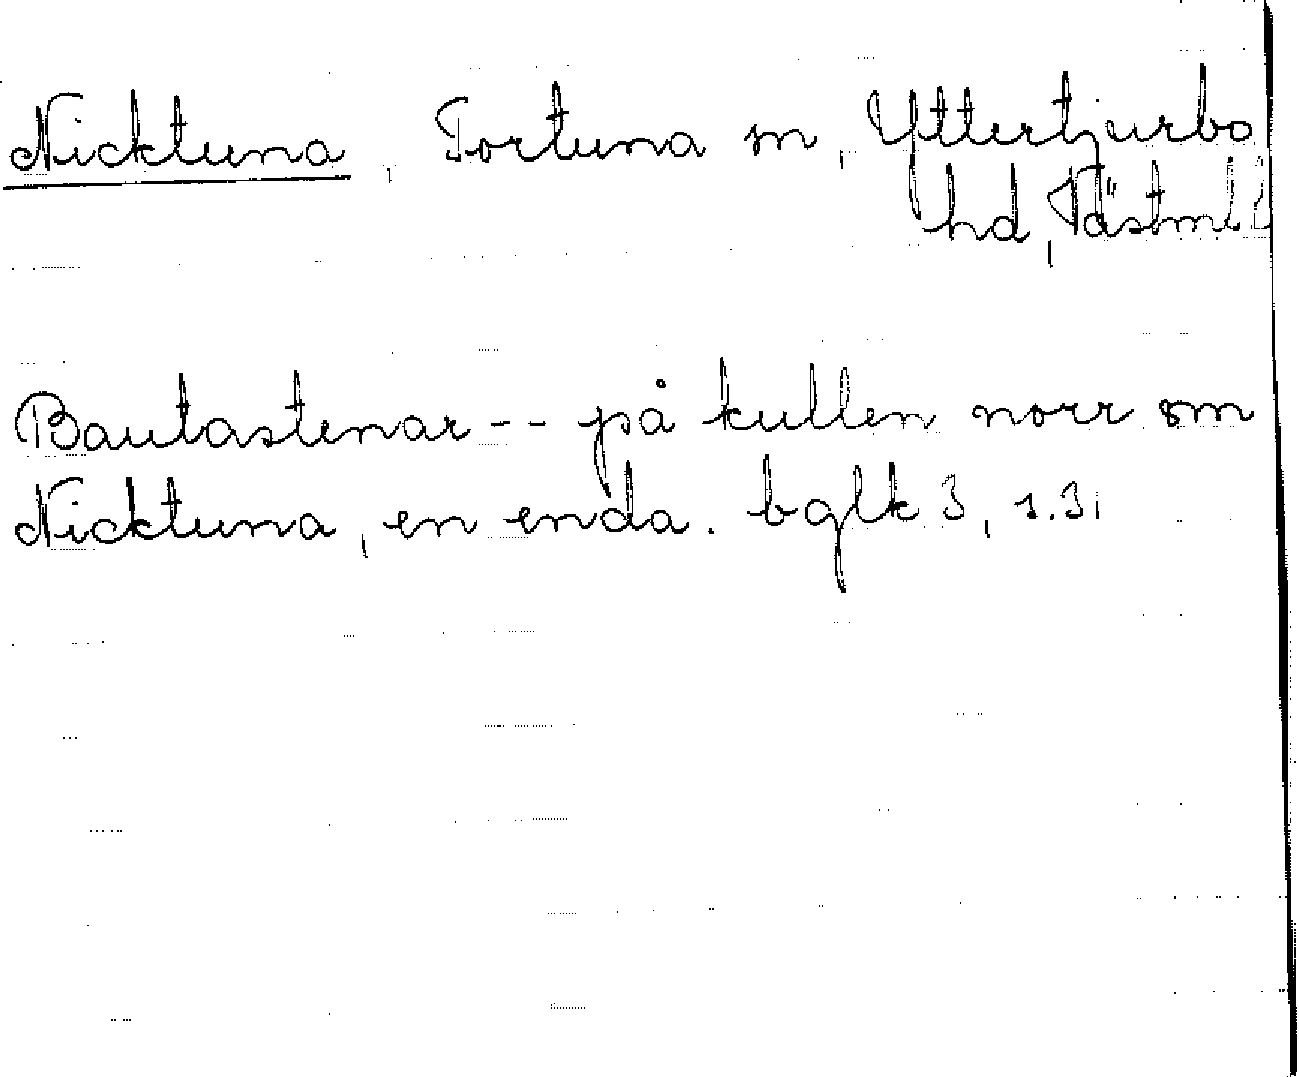 Nicktuna, Tortuna sn, Yttertjurbo
hd, Västml
Bautastenar -- på kullen norr om
Nicktuna, en enda. bglk 3, s. 31